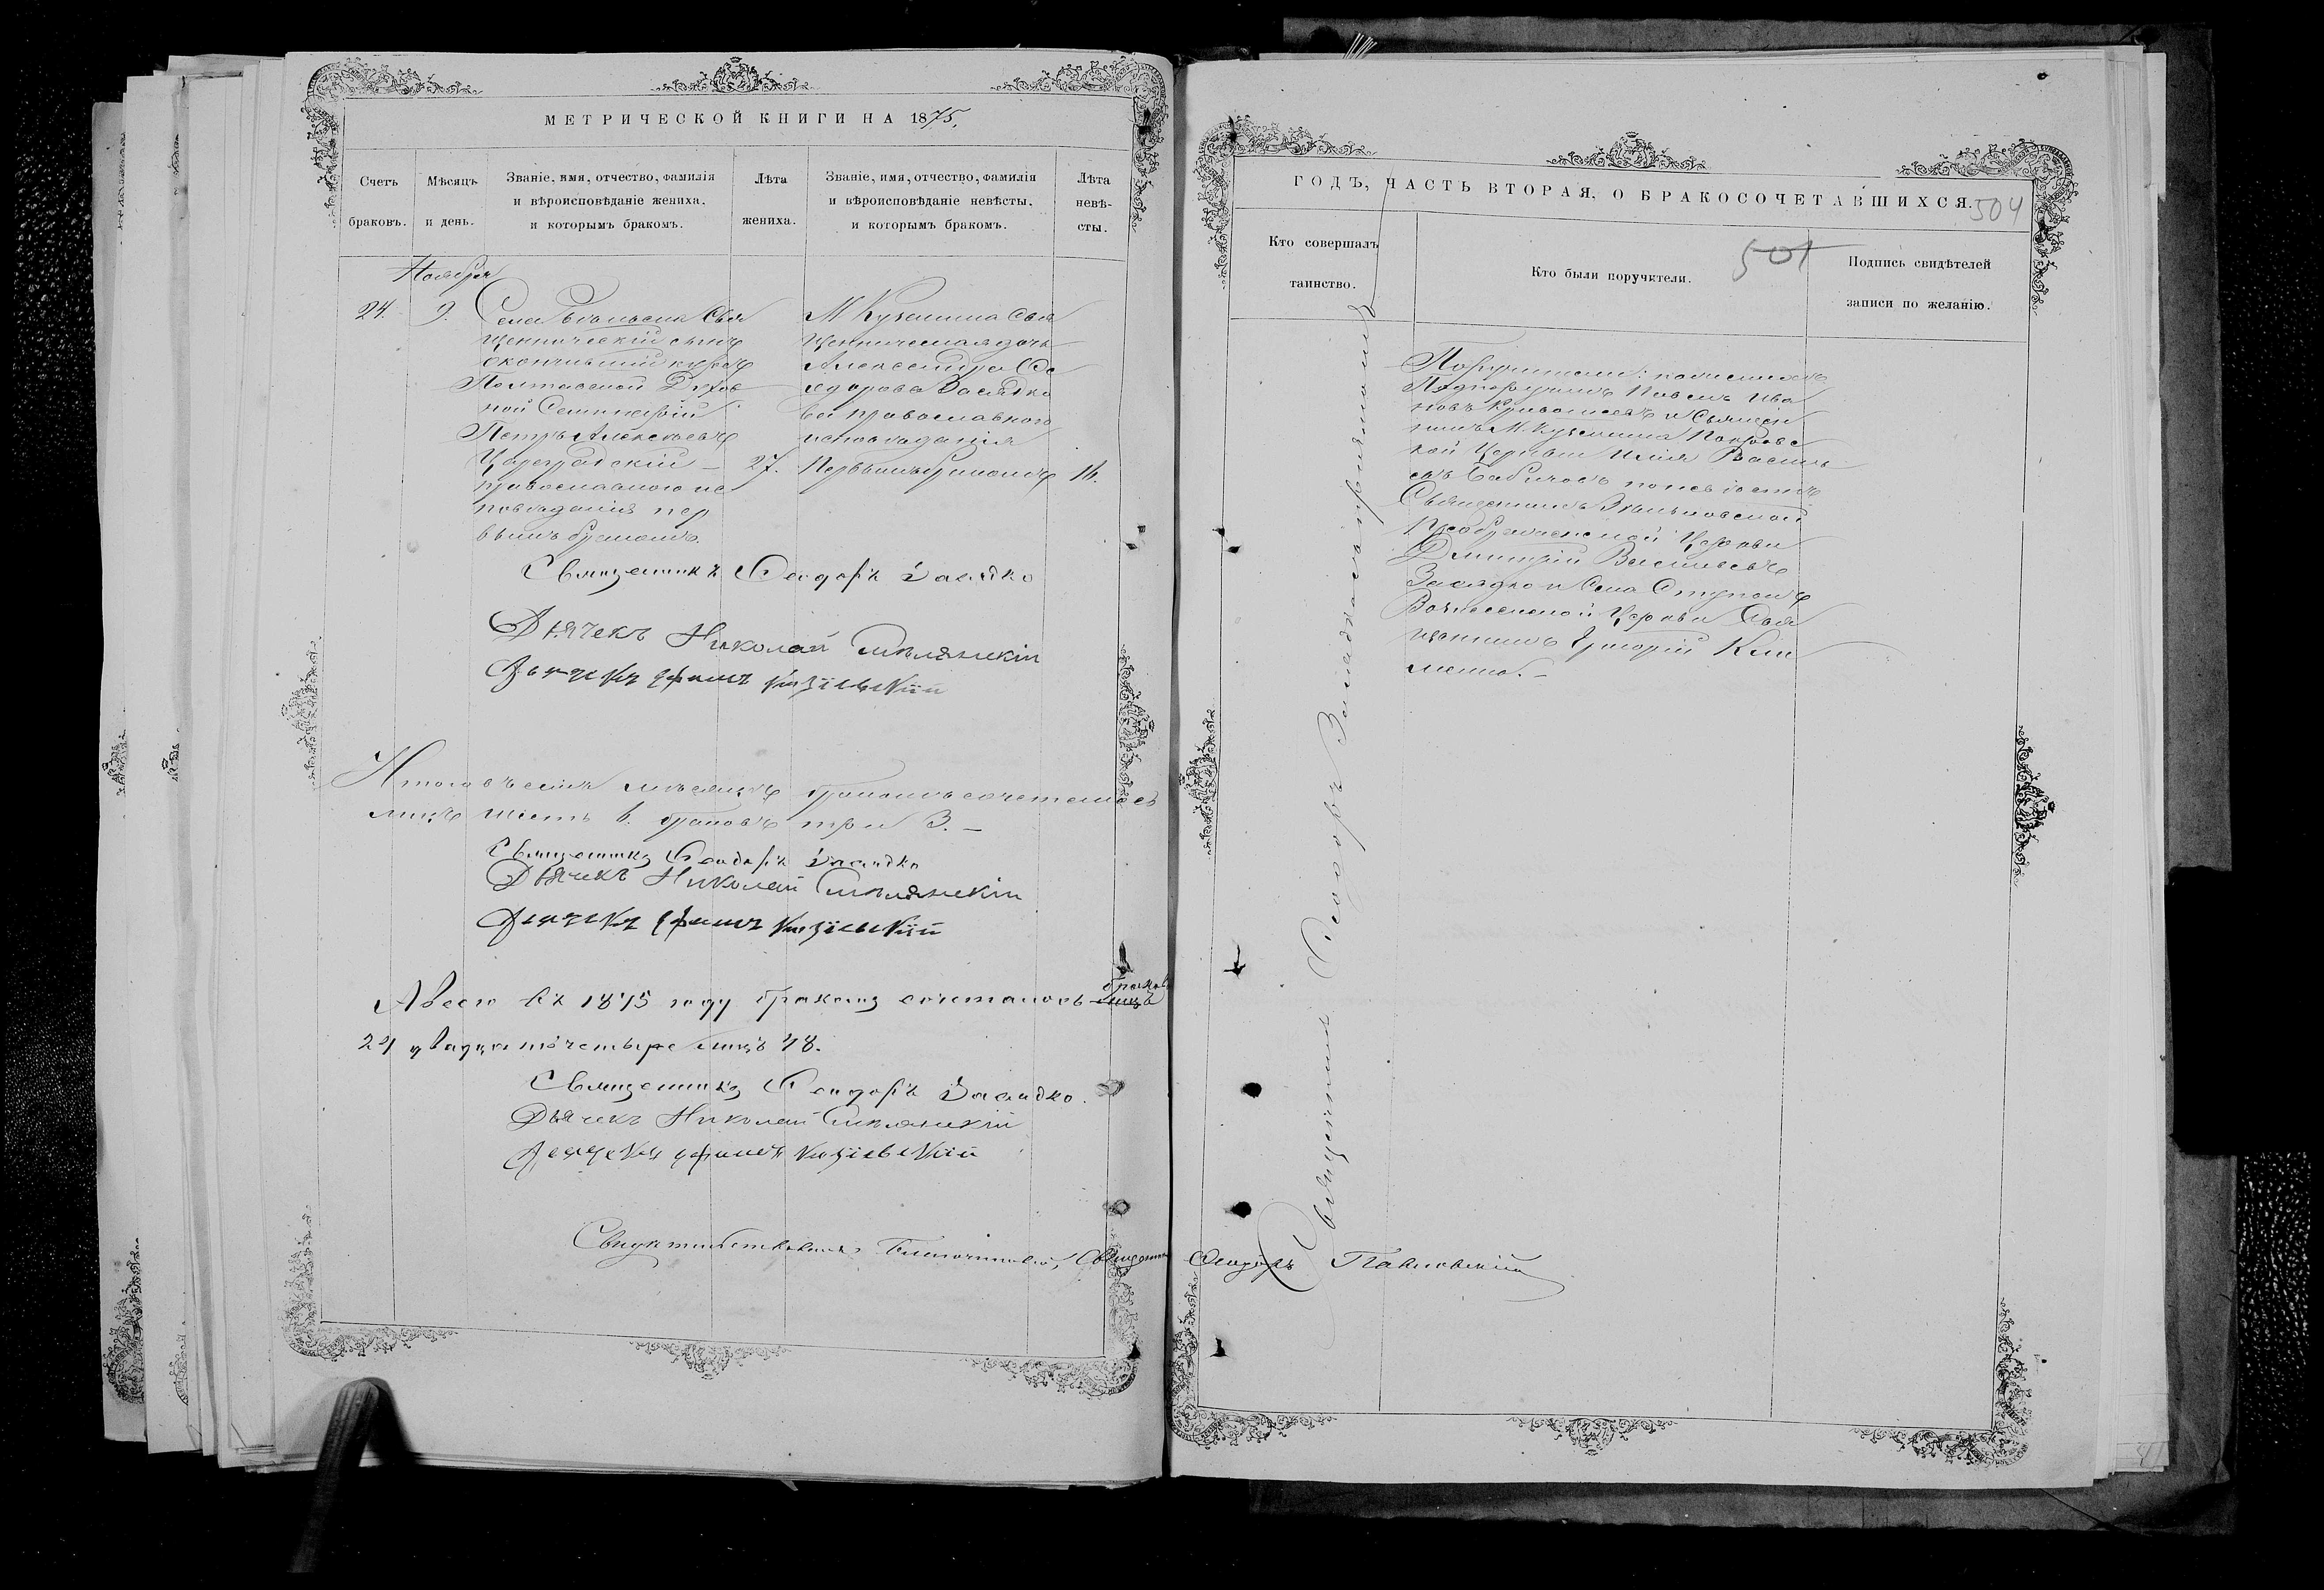 МЕТРИЧЕСКОЙ КНИГИ НА 1875,
Счетъ браковъ.
Мѣсяцъ и день.
Званіе, имя, отчество, фамилія
и вѣроисповѣданіе жениха,
и которымъ бракомъ.
Лѣта жениха.
Званіе, имя, отчество, фамилія
и вѣроисповѣданіе невѣсты,
и которымъ бракомъ.
Лѣта невѣ-
сты.
Ноября
24. 9.
Села Свя
щенническій сынъ
окончившій курсъ
Полтавской Духов
ной Семинаріи
Петръ Алексѣевъ
Цареградскій —
православного ис
повѣданія пер
вымъ бракомъ.
27.
М. Куземина Свя
щенническая дочь
Александра Ѳе
одорова Засядко
ва православного
исповѣданія
Первымъ бракомъ
16.
Священникъ Ѳеодоръ Засядко
Дьячекъ Николай
Дьячекъ
Итого въ семъ мѣсяцѣ бракомъ сочеталось
лицъ шесть 6. браковъ три 3. —
Священникъ Ѳеодоръ Засядко
Дьячекъ Николай
Дьячекъ
А всего въ 1875 году бракомъ сочеталось лицъ браковъ
24 двадцать четыре лицъ 48.
Священникъ Ѳеодоръ Засядко.
Дьячекъ Николай
Дьячекъ
Свидѣтельствовалъ Благочинный, Священникъ Ѳеодоръ Павловскій
ГОДЪ, ЧАСТЬ ВТОРАЯ, О БРАКОСОЧЕТАВШИХСЯ.
504
501
Кто совершалъ
таинство.
Кто были поручители.
Подпись свидѣтелей
записи по желанію.
Священникъ Ѳеодоръ Засядко съ причтомъ
Поручители: по женихѣ
Подпоручикъ Павелъ Ива
новъ и Священ
никъ М. Куземина Покровс
кой Церкви Илія Василь
евъ Бабичевъ по невѣстѣ
Священникъ Зѣньковской
Преображенской Церкви
Димитрій Васильевъ
Засядко и Села Ступокъ
Вознесенской Церкви Свя
щенникъ Григорій Кли
менко. —